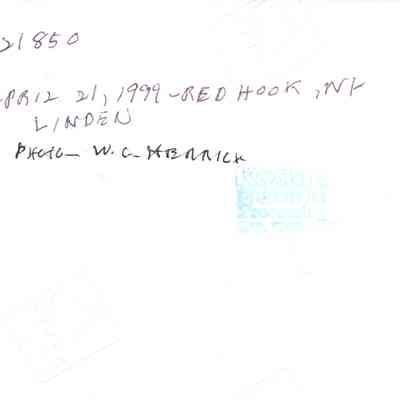 21850
PRIL 21, 1999 - RED HOOK, NY
LINDEN
PHOTO - W. C. HERRICK